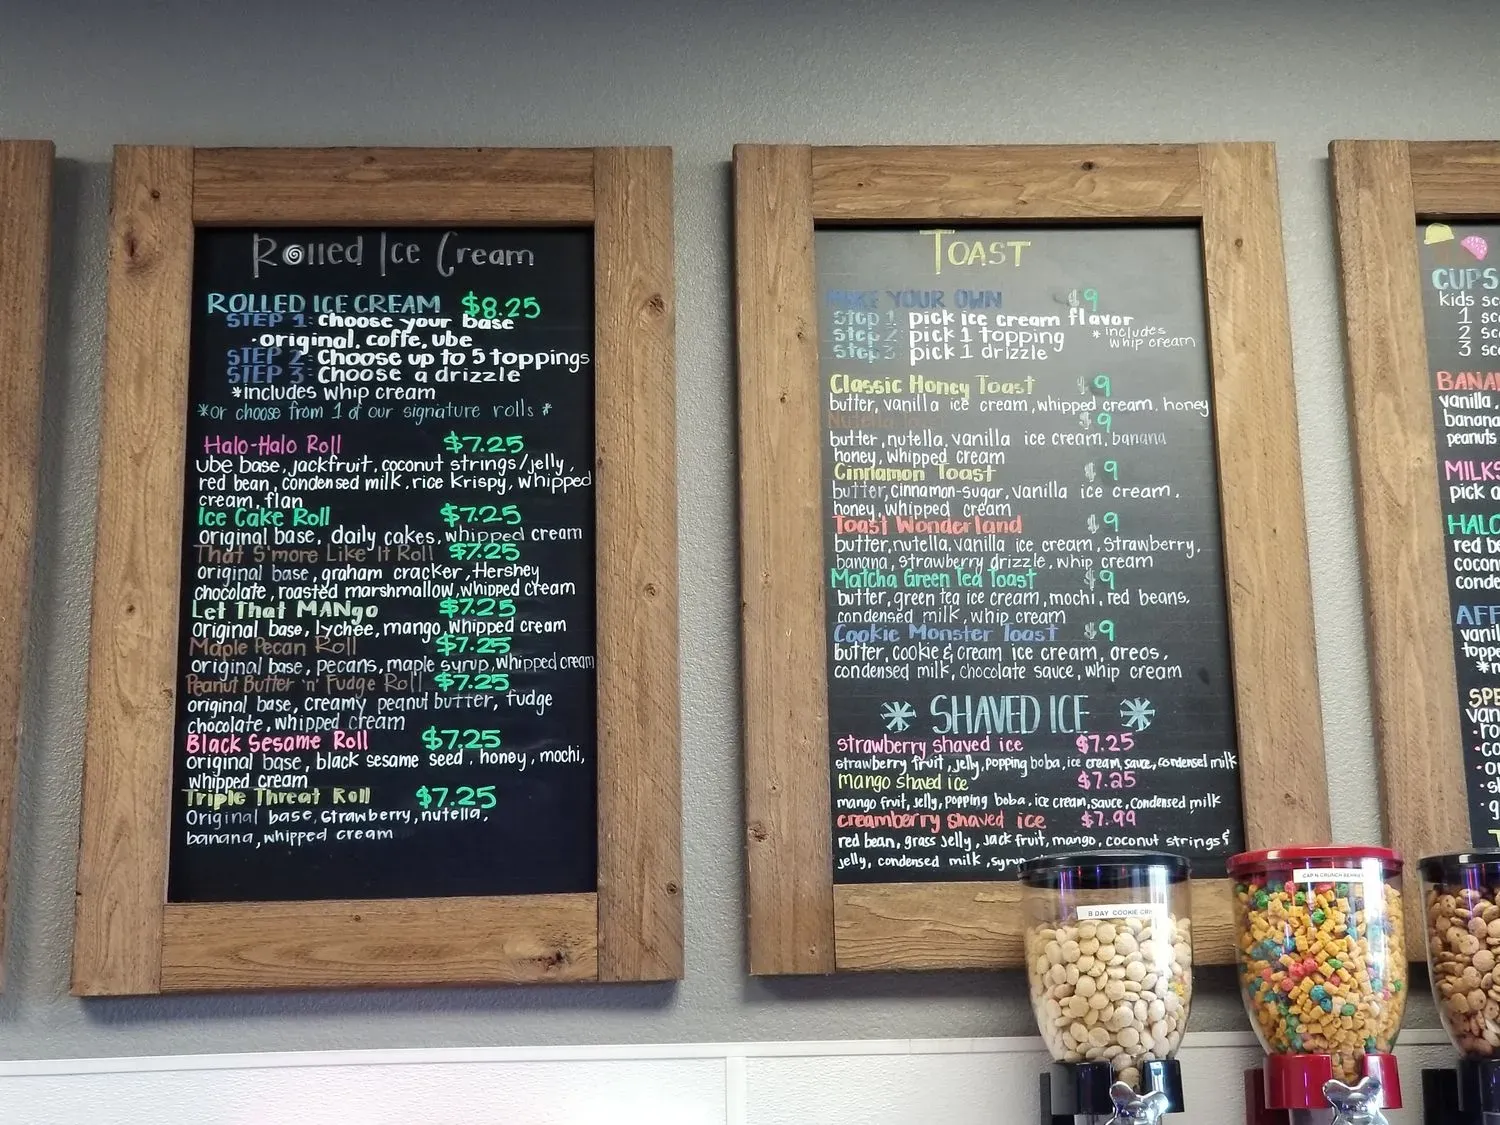 Rolled Ice Cream
ROLLED ICE CREAM $8.25
STEP 1: Choose your base
·original, coffe, ube
STEP 2: Choose up to 5 toppings
STEP 3: Choose a drizzle
*includes whip cream
*or choose from 1 of our signature rolls *
Halo-Halo Roll $7.25
ube base, jackfruit, coconut strings/jelly,
red bean, condensed milk, rice krispy, whipped
cream, flan
Ice Cake Roll $7.25
original base, daily cakes, whipped cream
That S'more Like It Roll $7.25
original base, graham cracker, Hershey
chocolate, roasted marshmallow, whipped cream
Let That MANgo $7.25
original base, lychee, mango, whipped cream
Maple Pecan Roll $7.25
original base, pecans, maple syrup, whipped cream
Peanut Butter 'n' Fudge Roll $7.25
original base, creamy peanut butter, fudge
chocolate, whipped cream
Black Sesame Roll $7.25
original base, black sesame seed, honey, mochi,
whipped cream
Triple Threat Roll $7.25
Original base, strawberry, nutella,
banana, whipped cream
TOAST
MAKE YOUR OWN $9
Step 1: pick ice cream flavor
Step 2: pick 1 topping
* includes
whip cream
Step 3: pick 1 drizzle
Classic Honey Toast $9
butter, vanilla ice cream, whipped cream, honey
Nutella $9
butter, nutella, vanilla ice cream, banana
honey, whipped cream
Cinnamon Toast $9
butter, cinnamon-sugar, vanilla ice cream,
honey, whipped cream
Toast Wonderland $9
butter, nutella, vanilla ice cream, strawberry,
banana, strawberry drizzle, whip cream
Matcha Green Tea Toast $9
butter, green tea ice cream, mochi, red beans,
condensed milk, whip cream
Cookie Monster Toast $9
butter, cookie & cream ice cream, oreos,
condensed milk, chocolate sauce, whip cream
SHAVED ICE
strawberry shaved ice $7.25
strawberry fruit, jelly, popping boba, ice cream, sauce, condensel milk
Mango shaved ice $7.25
mango fruit, jelly, popping boba, ice cream, sauce, condensed milk
creamberry shaved ice $7.99
red bean, grass jelly, jack fruit, mango, coconut strings &
jelly, condensed milk, syrup
CUPS
kids
1
2
3
vanilla,
banana
peanuts
pick a
red
B DAY COOKIE
CAP N CRUNCH BERRIES